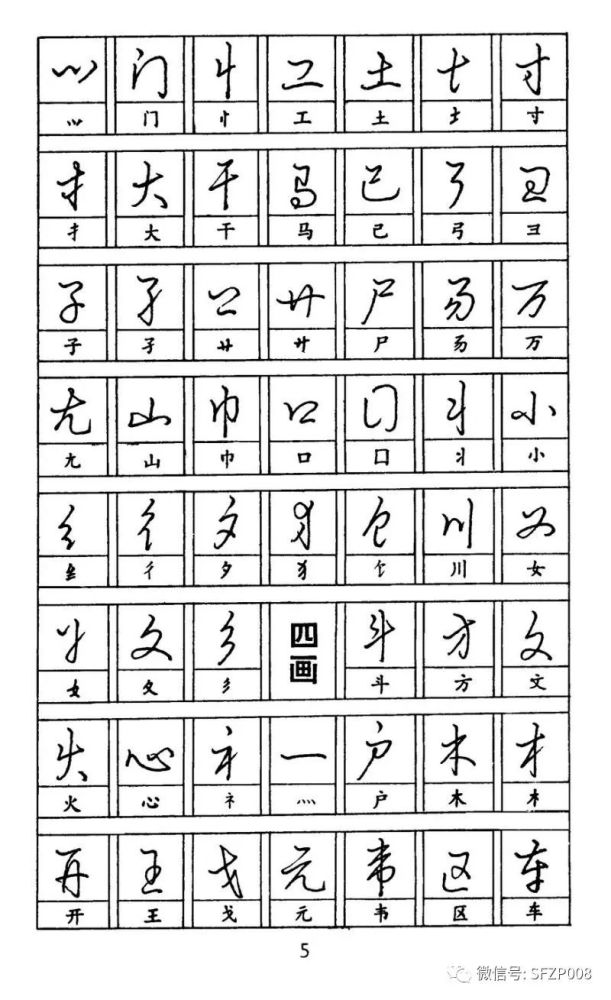 ⺌ 门 丬 工 土 士 寸
⺌ 门 丬 工 土 士 寸
扌 大 干 马 己 弓 彐
扌 大 干 马 己 弓 彐
子 孑 廾 廾 尸 万
子 孑 廾 廾 尸 万
尢 山 巾 口 囗 丬 小
尢 山 巾 口 囗 丬 小
纟 彳 夕 犭 饣 川 女
纟 彳 夕 犭 饣 川 女
女 夂 彡 四画 斗 方 文
女 夂 彡 斗 方 文
火 心 礻 灬 户 木 木
火 心 礻 灬 户 木 木
开 王 戈 元 韦 区 车
开 王 戈 元 韦 区 车
5
微信号: SFZP008